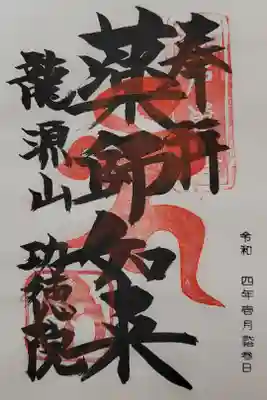 奉拝
薬師如来
龍源山 功徳院
令和 四年壱月拾参日